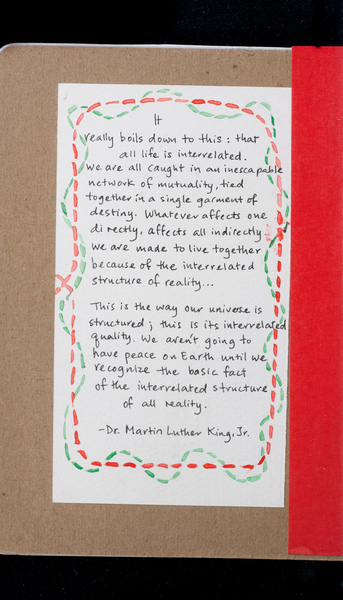 It
really boils down to this: that
all life is interrelated.
We are all caught in an inescapable
network of mutuality, tied
together in a single garment of
destiny. Whatever affects one
directly, affects all indirectly.
We are made to live together
because of the interrelated
structure of reality...
This is the way our universe is
structured; this is its interrelated
quality. We aren't going to
have peace on Earth until we
recognize the basic fact
of the interrelated structure
of all reality.
-Dr. Martin Luther King, Jr.